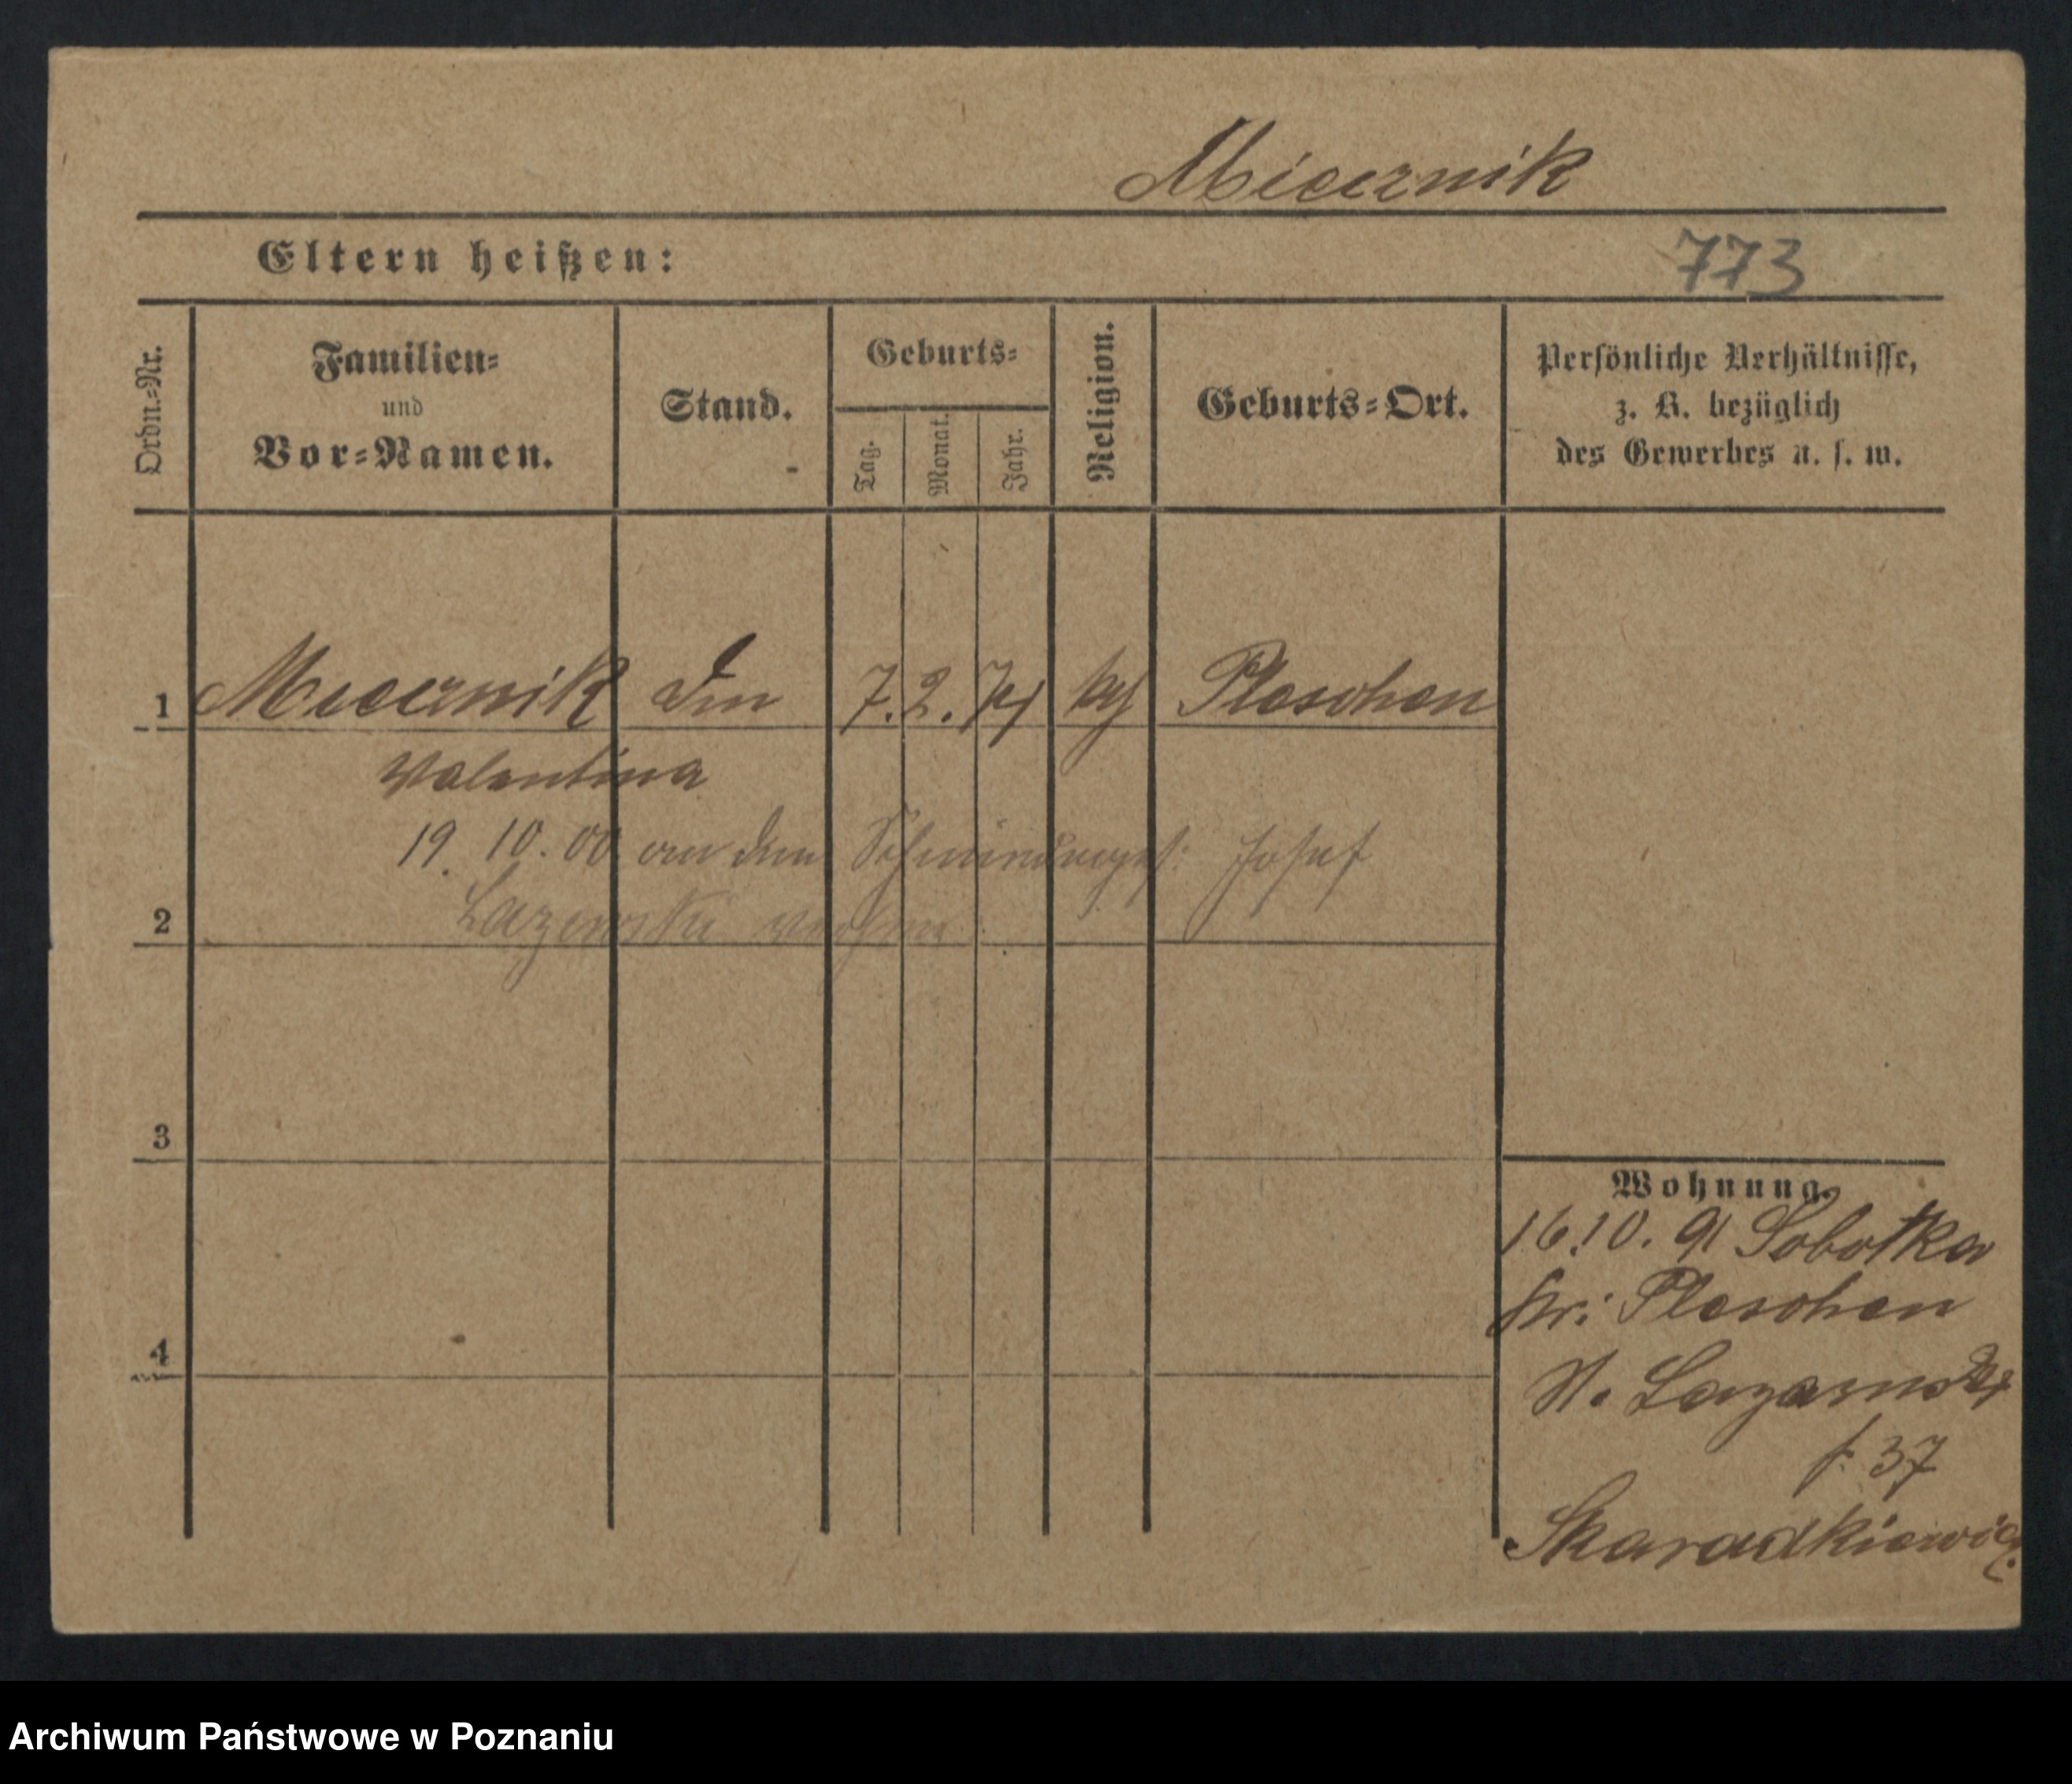 Miecznik
Eltern heißen:
773
Ordn.-Nr.
Familien-
und
Vor-Namen.
Stand.
Geburts-
Tag.
Monat.
Jahr.
Religion.
Geburts-Ort.
Persönliche Verhältnisse,
z. B. bezüglich
des Gewerbes u. s. w.
1 Miecznik 7. 2. 74 Pleschen
Valentina
19. 10. 00 an den Josef
2
3
4
Wohnung.
16.10.91 Sobotka
Kr: Pleschen
St. Lazarus
37
Skaradkiewicz
Archiwum Państwowe w Poznaniu